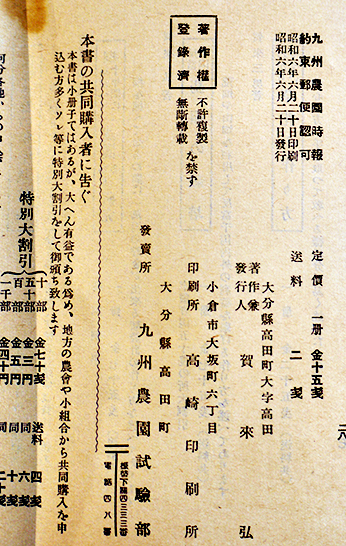 九州農園時報
約束郵便認可
昭和六年六月二十日印刷
昭和六年六月二十日發行
著作權
登錄濟
不許複製
無斷轉載
を禁ず
定價 一册 金十五錢
送料 二錢
大分縣高田町大字高田
著作兼
發行人 賀來 弘
小倉市大坂町六丁目
印刷所 高崎印刷所
大分縣高田町
發賣所 九州農園試驗部
振替下關四三三三番
電話四八番
本書の共同購入者に告ぐ
本書は小册子ではあるが、大へん有益である爲め、地方の農會や小組合から共同購入を申
込む方多くソレ等に特別大割引をして御頒ち致します
特別大割引
十部 金七十錢 送料 四錢
五十部 金三円 同 六錢
百部 金五円 同 十錢
一千部 金四十円 同 二十錢